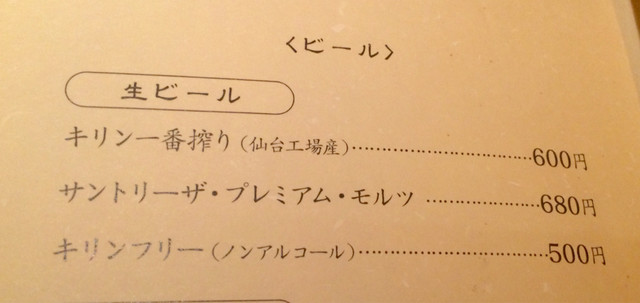 〈ビール〉
生ビール
キリン一番搾り（仙台工場産）……………………………600円
サントリーザ・プレミアム・モルツ …………………680円
キリンフリー（ノンアルコール）……………………………500円